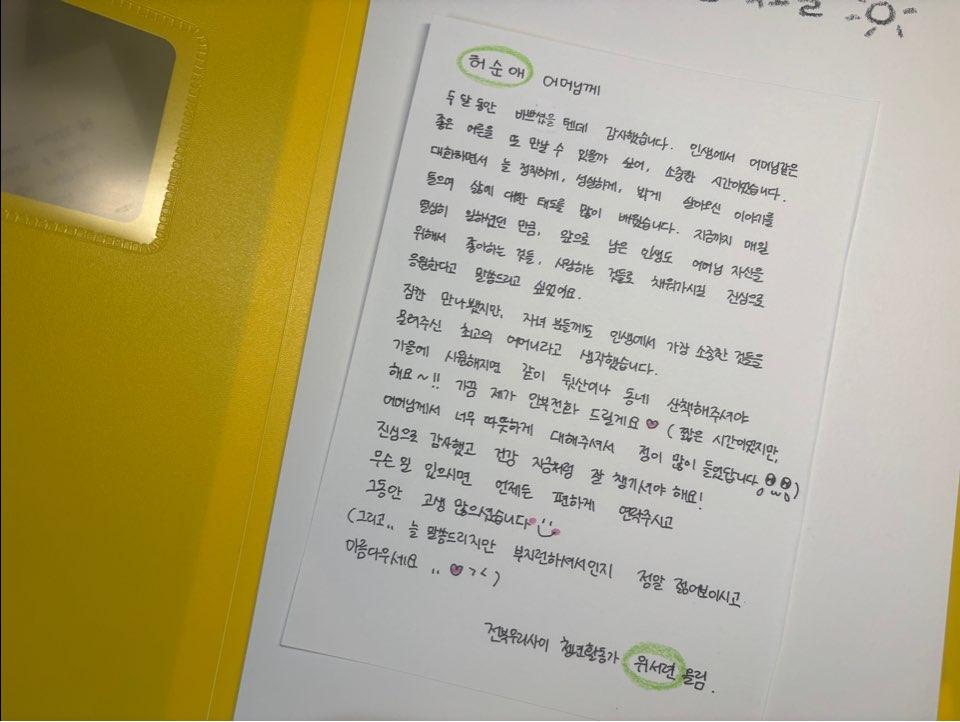 허순애 어머님께
두 달 동안 바쁘셨을 텐데 감사했습니다. 인생에서 어머님같은
좋은 어른을 또 만날 수 있을까 싶어, 소중한 시간이었습니다.
대화하면서 늘 정직하게, 성실하게, 밝게 살아오신 이야기를
들으며 삶에 대한 태도를 많이 배웠습니다. 지금까지 매일
열심히 일하셨던 만큼, 앞으로 남은 인생도 어머님 자신을
위해서 좋아하는 것들, 사랑하는 것들로 채워가시길 진심으로
응원한다고 말씀드리고 싶었어요.
잠깐 만나뵀지만, 자녀 분들께도 인생에서 가장 소중한 것들을
물려주신 최고의 어머니라고 생각했습니다.
가을에 시원해지면 같이 뒷산이나 동네 산책해주셔야
해요~!! 가끔 제가 안부전화 드릴게요 ♥ (짧은 시간이었지만,
어머님께서 너무 따뜻하게 대해주셔서 정이 많이 들었답니다)
진심으로 감사했고 건강 지금처럼 잘 챙기셔야 해요!
무슨 일 있으시면 언제든 편하게 연락주시고
그동안 고생 많으셨습니다
(그리고.. 늘 말씀드리지만 부지런하셔서인지 정말 젊어보이시고
아름다우세요 .. ♥ >< )
전북우리사이 청년활동가 위서련 올림.